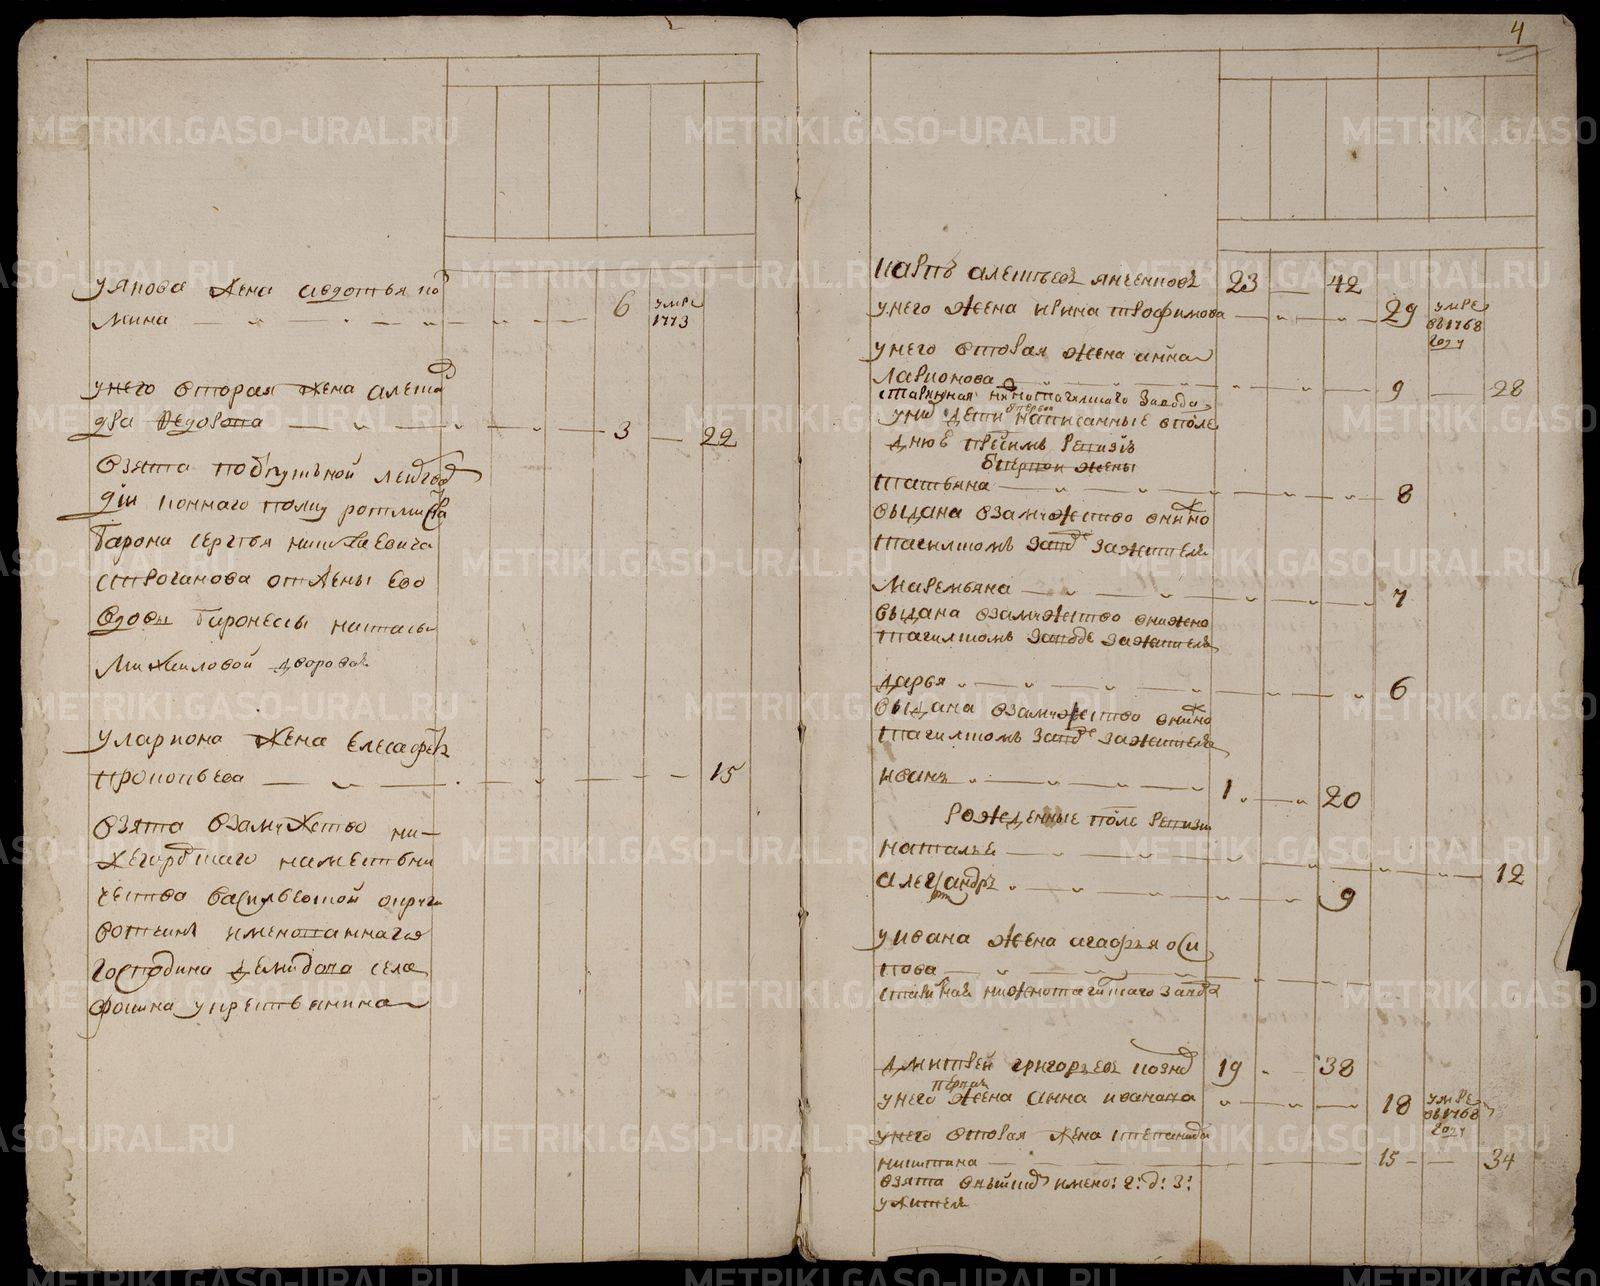 2
уякова жена авдотья ко
мина 6 умре
1773
унего вторая жена алекса
дра федорова 3 22
взята побпушной лейбгвар
дии коннаго полку ротмистра
барона сергея николаевича
строганова от жены ево
вдовы баронессы натальи
михаиловой дворовая
улариона жена елесафета
прокопьева 15
взята взамужство ни
жегородскаго наместни
чества василевской округи
вотчины именованнаго
господина демидова села
фокина укрестьянина
4
карпъ алексеевъ 23 42
унего жена ирина трофимова 29 умре
въ 1768
году
унего вторая жена анна
ларионова 9 28
старинная нижнотагилскаго завода
уних дети написанные впосле
днюю пред симъ ревизiю
отпервои жены
татьяна 8
выдана взамужство внижно
тагилскомъ заводе зажителя
маремьяна 7
выдана взамужство внижно
тагилскомъ заводе зажителя
дарья 6
выдана взамужство внижно
тагилскомъ заводе зажителя
иванъ 1 20
рожденные после ревизи
наталья 12
александръ 9
уивана жена агафья оси
пова
старинная нижнотагилскаго завода
дмитрей григорьевъ 19 38
первая
унего жена анна иванова 18 умре
въ 1768
году
унего вторая жена степанида
никитина 15 34
взята имено: г: д: з:
ужителя
METRIKI.GASO-URAL.RU